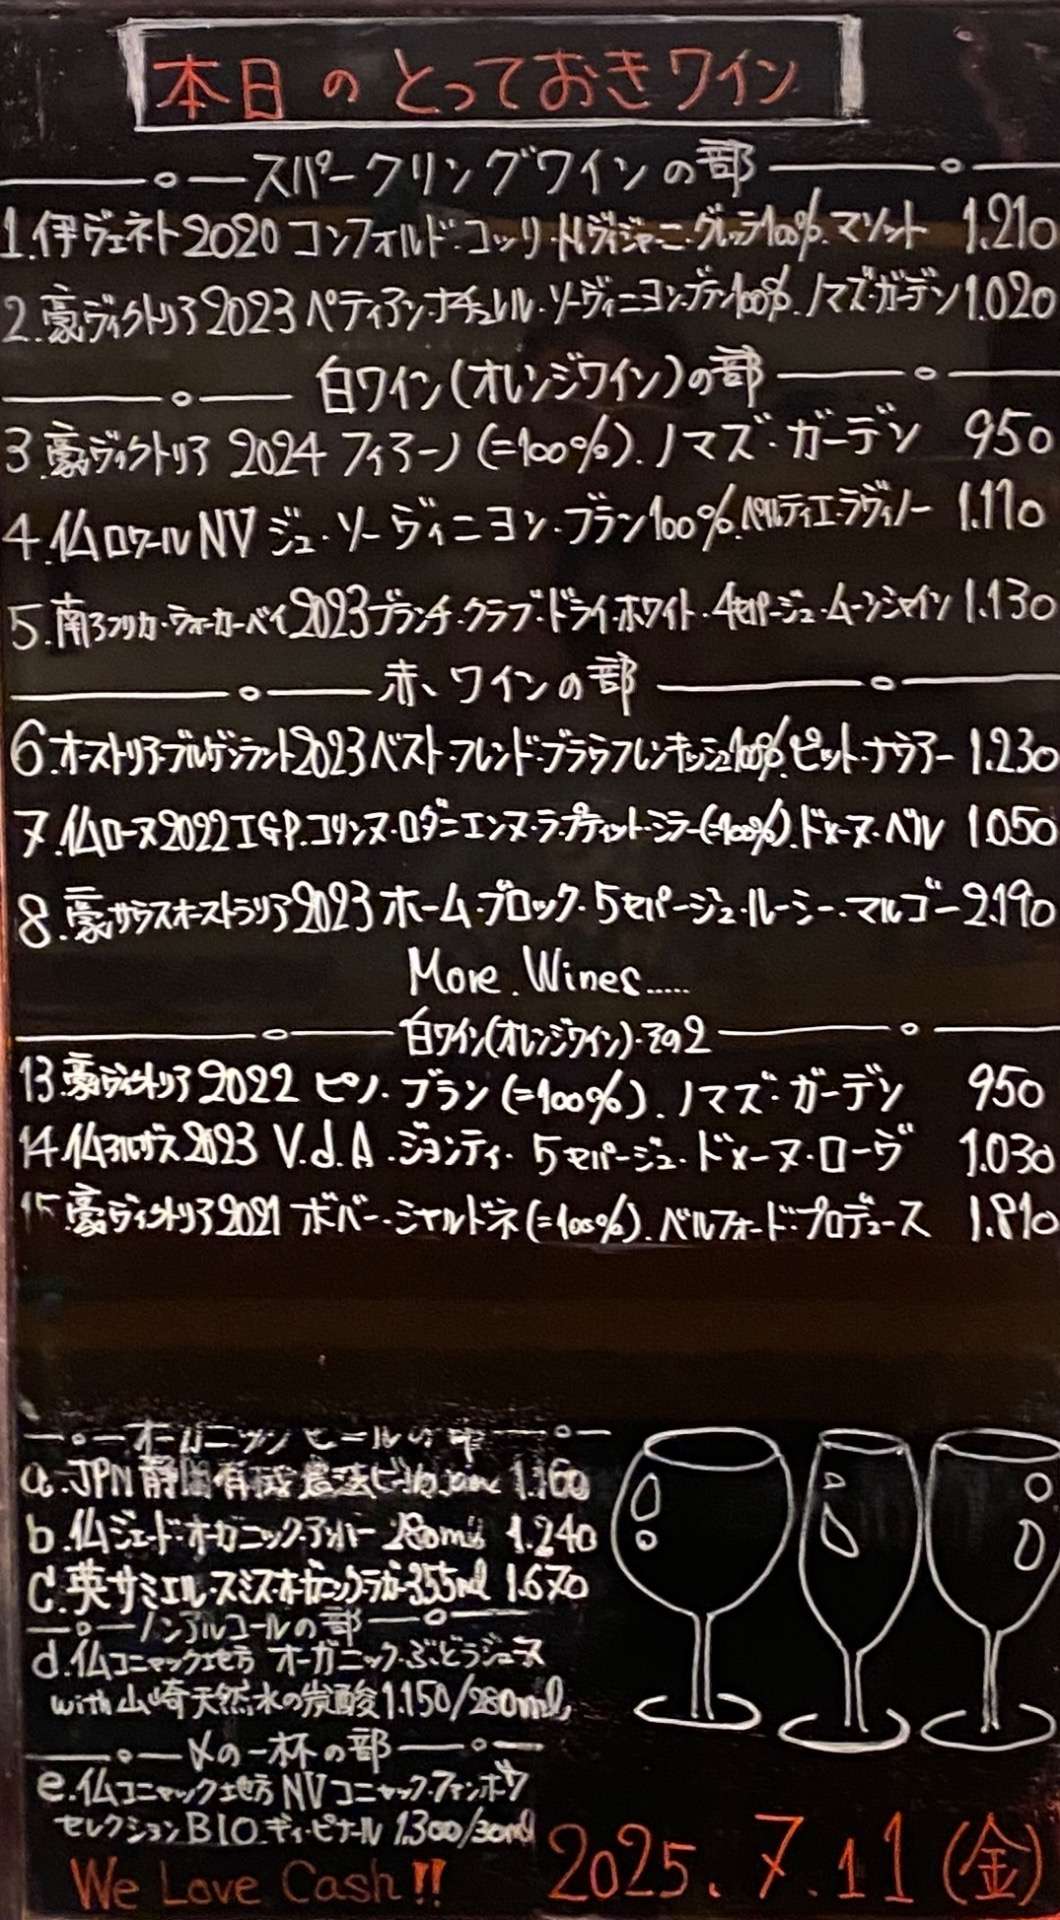 本日のとっておきワイン
スパークリングワインの部
1.伊ヴェネト2020 コンフォルド・コッリ・トレヴィジャーニ・グレッラ100%.マソット 1.210
2.豪ヴィクトリア2023 ペティアン・ナチュレル・ソーヴィニヨン・ブラン100%.ノマズ・ガーデン 1.020
白ワイン(オレンジワイン)の部
3.豪ヴィクトリア 2024 フィアーノ(=100%).ノマズ・ガーデン 950
4.仏ロワールNV ジュ・ソーヴィニヨン・ブラン100%.ペルティエ・ラヴィノー 1.110
5.南アフリカ・ウォーカーベイ2023ブランチ・クラブ・ドライ・ホワイト・4セパージュ・ムーンシャイン 1.130
赤ワインの部
6.オーストリア・ブルゲンラント2023ベスト・フレンド・ブラウフレンキッシュ100%.ピット・ナウアー 1.230
7.仏ローヌ2022 IGP.コリンヌ・ロダニエンヌ・ラ・プティット・シラー(=100%).ドメーヌ・ベル 1.050
8.豪サウスオーストラリア2023 ホーム・ブロック・5セパージュ・ルーシー・マルゴー 2.190
More.Wines.....
白ワイン(オレンジワイン)・その2
13.豪ヴィクトリア2022 ピノ・ブラン(=100%).ノマズ・ガーデン 950
14.仏アルザス2023 V.d.A・ジョンティ・5セパージュ・ドメーヌ・ローヴ 1.030
15.豪ヴィクトリア2021 ボバー・シャルドネ(=100%).ベルフォード・プロデュース 1.810
オーガニックビールの部
a.JPN静岡有機農法ビール 1.160
b.仏ジェード・オーガニック・アンバー 280ml 1.240
c.英サミエル・スミス・オーガニックラガー355ml 1.670
ノンアルコールの部
d.仏コニャック地方 オーガニック・ぶどうジュース
with山崎天然水の炭酸1.150/280ml
〆の一杯の部
e.仏コニャック地方 NVコニャック・ファンボワ
セレクションBIO.ギィ・ピナール 1.300/30ml
We Love Cash!!
2025.7.11(金)